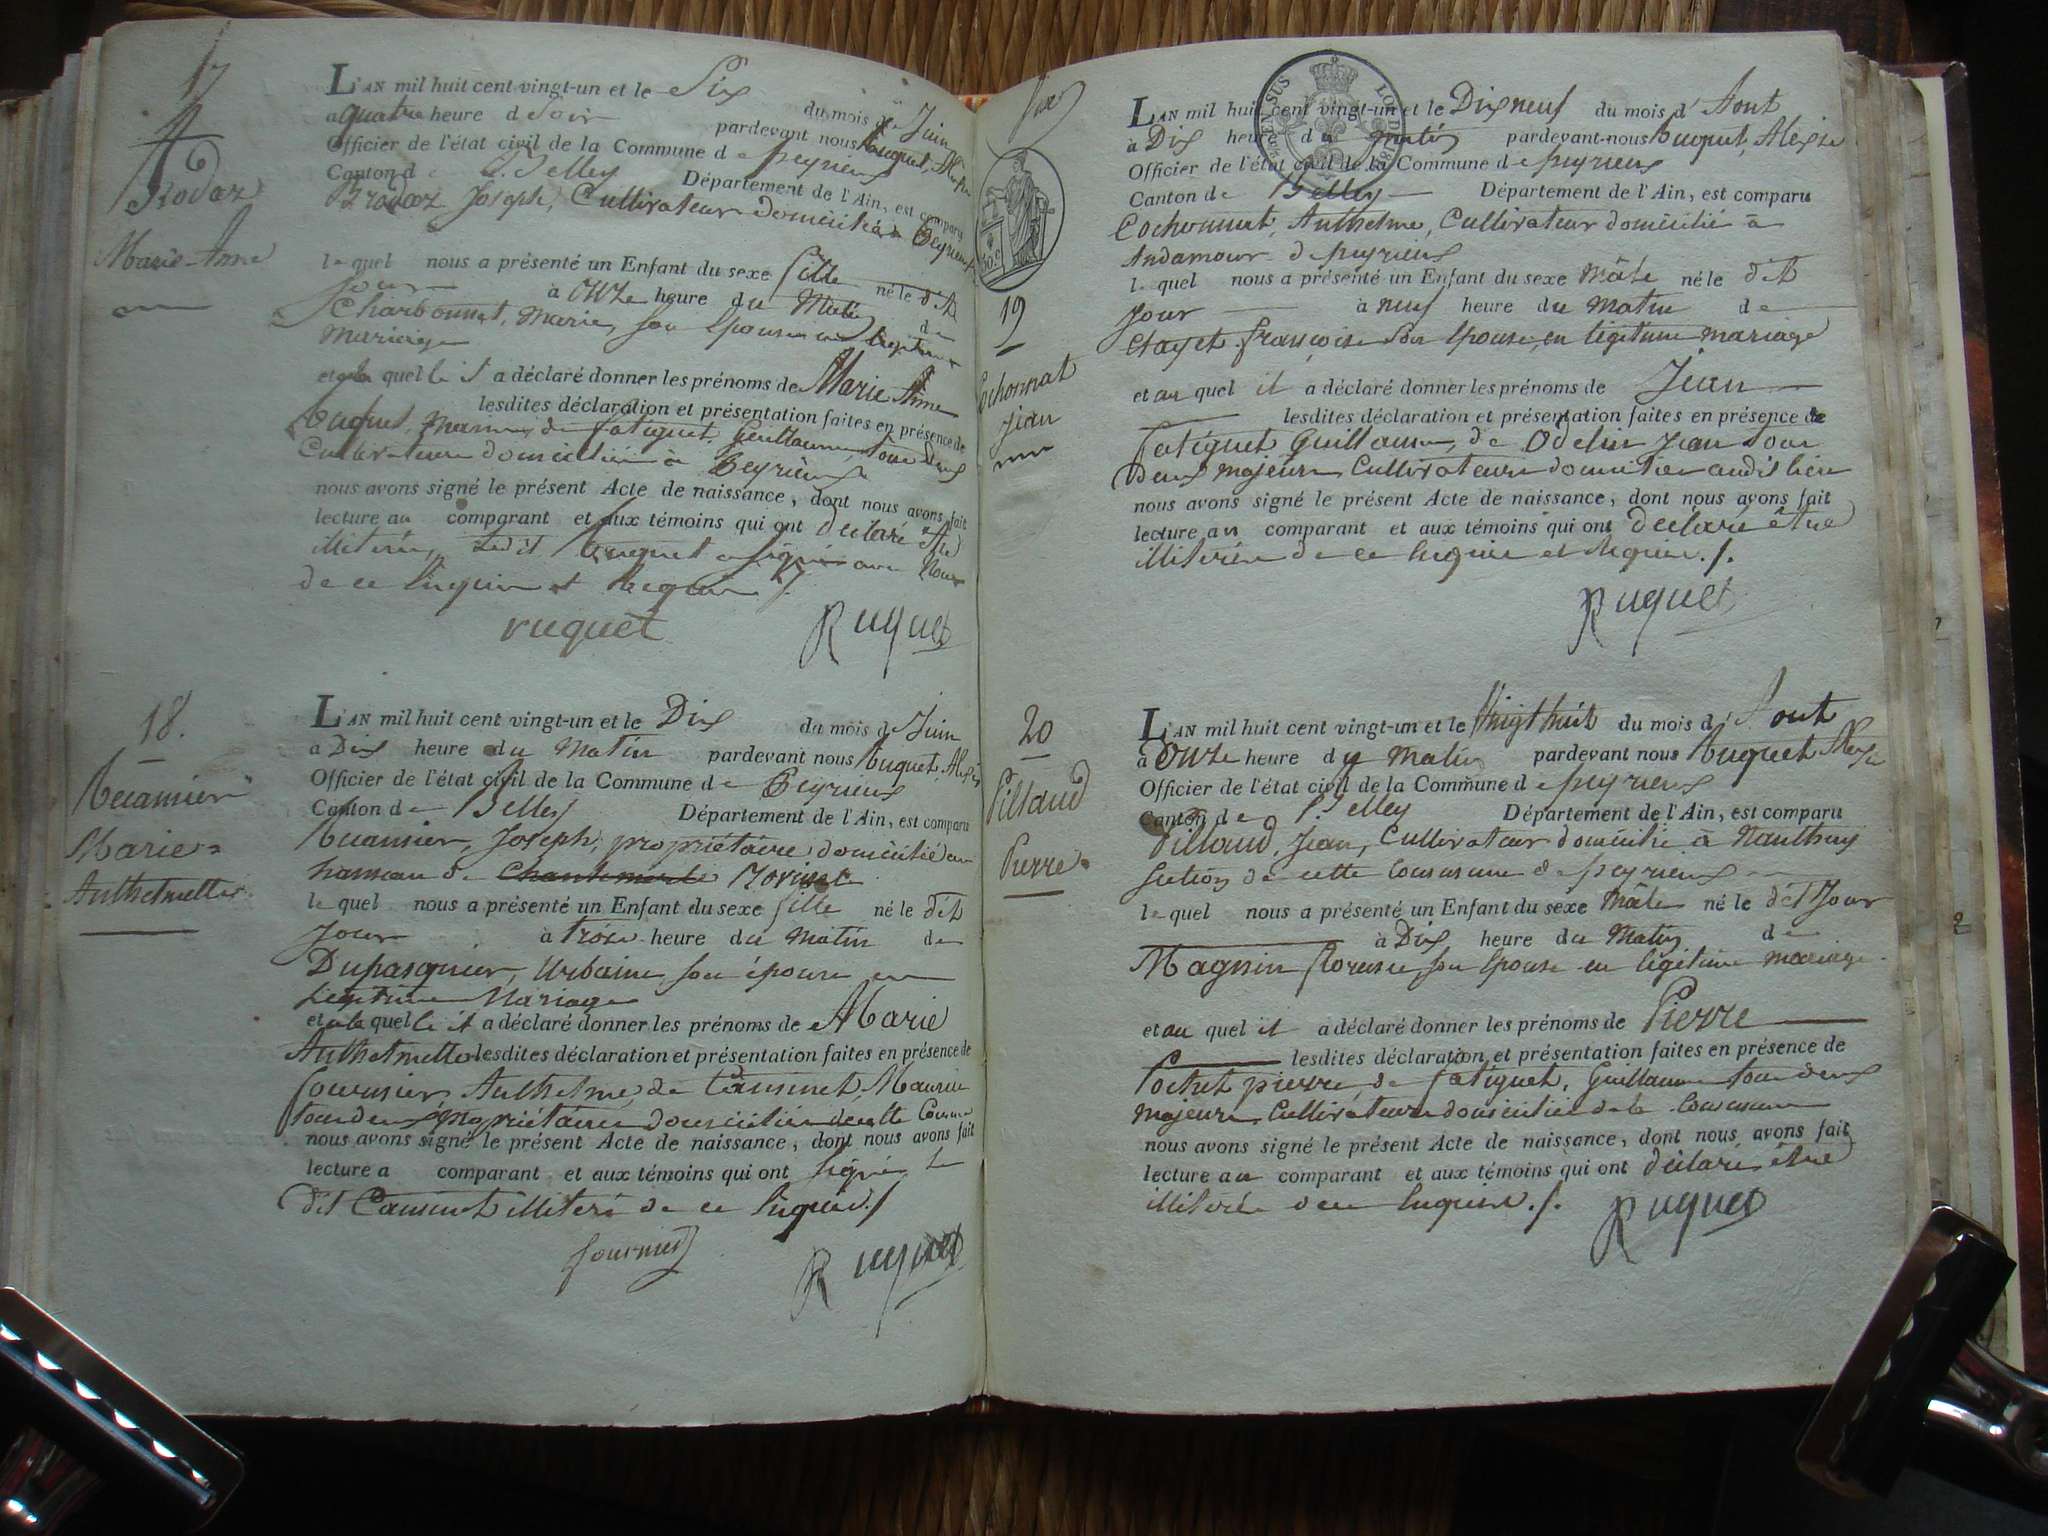 17
Brodaz
Marie-Anne
L'AN mil huit cent vingt-un et le Six du mois de Juin
à quatre heure d Soir pardevant nous Ruquet, Alexis
Officier de l'état civil de la Commune de peyrieux
Canton de Belley Département de l'Ain, est comparu
Brodaz Joseph, Cultivateur domicilié à Peyrieux
le quel nous a présenté un Enfant du sexe fille né le dit
Jour à onze heure du Matin de
Charbonnet, marie, son épouse en légitime
mariage
et à la quelle il a déclaré donner les prénoms de Marie Anne
lesdites déclaration et présentation faites en présence de
Ruquet, de fatiguet, Guillaume, tous deux
Cultivateurs domiciliés à Peyrieux
nous avons signé le présent Acte de naissance, dont nous avons fait
lecture au comparant et aux témoins qui ont déclaré être
illitérés, Ledit Ruquet a signé avec Nous
de ce Enquis et Requis
ruquet Ruquet
18.
Récamier
Marie
Anthelmette
L'AN mil huit cent vingt-un et le Dix du mois de Juin
à Dix heure du Matin pardevant nous Ruquet, Alexis
Officier de l'état civil de la Commune de Peyrieux
Canton de Belley Département de l'Ain, est comparu
Récamier, Joseph, propriétaire domicilié au
hameau de
le quel nous a présenté un Enfant du sexe fille né le dit
Jour à trois heure du Matin de
Dupasquier, Urbaine, son épouse en
Légitime Mariage
et à la quelle il a déclaré donner les prénoms de Marie
Anthelmette lesdites déclaration et présentation faites en présence de
fournier Anthelme, de Maurice
tous deux propriétaires domiciliés de cette Commune
nous avons signé le présent Acte de naissance, dont nous avons fait
lecture a comparant et aux témoins qui ont signé le
dit illitéré de ce Enquis ./
fournier Ruquet
50.c
19
Cochonnat
Jean
L'AN mil huit cent vingt-un et le Dix neuf du mois d'Aout
à Dix heure du matin pardevant-nous Ruquet, Alexis
Officier de l'état civil de la Commune de peyrieux
Canton de Belley Département de l'Ain, est comparu
Cochonnat, Anthelme, Cultivateur domicilié à
Andamour de peyrieux
le quel nous a présenté un Enfant du sexe Mâle né le dit
Jour à neuf heure du Matin de
Clayet françoise son épouse, en légitime mariage
et au quel il a déclaré donner les prénoms de Jean
lesdites déclaration et présentation faites en présence de
fatiguet Guillaume, de Odelin Jean tous
Deux majeurs Cultivateurs domiciliés audit lieu
nous avons signé le présent Acte de naissance, dont nous avons fait
lecture au comparant et aux témoins qui ont déclaré être
illitérés de ce Enquis et Requis ./.
Ruquet
20
Pillaud
Pierre
L'AN mil huit cent vingt-un et le Vingt huit du mois d'Aout
à Onze heure du matin pardevant nous Ruquet Alexis
Officier de l'état civil de la Commune de peyrieux
Canton de Belley Département de l'Ain, est comparu
Pillaud, Jean, Cultivateur domicilié à Nanthuy
section de cette Commune de peyrieux
le quel nous a présenté un Enfant du sexe Mâle né le dit Jour
à Dix heure du Matin de
Magnin florence, son épouse en légitime mariage
et au quel il a déclaré donner les prénoms de Pierre
lesdites déclaration et présentation faites en présence de
Pochet pierre, de fatiguet, Guillaume tous deux
majeurs Cultivateurs domiciliés de la Commune
nous avons signé le présent Acte de naissance, dont nous avons fait
lecture au comparant et aux témoins qui ont déclaré être
illitérés de ce Enquis ./.
Ruquet